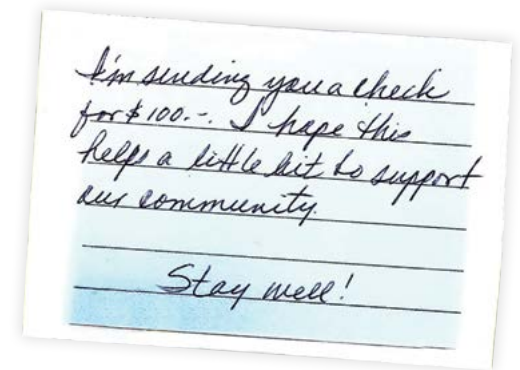 I'm sending you a check
for $100.-. I hope this
helps a little bit to support
our community.
Stay well!